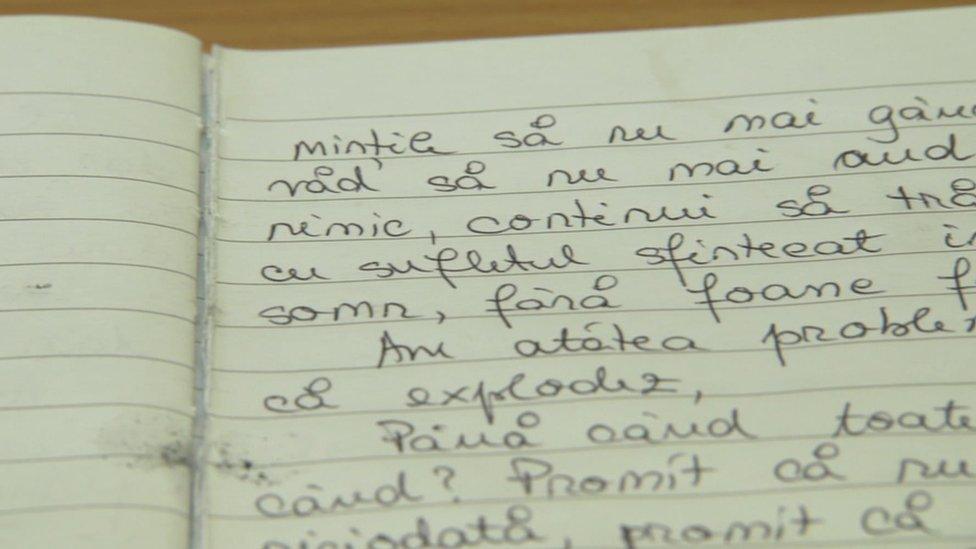 mințile să nu mai gân
râd să nu mai aud
nimic, continui să tră
cu sufletul sfințecat în
somn, fără foame f
Am atâtea proble
că explodez,
Până când toate
când? Promit că nu
niciodată, promit că